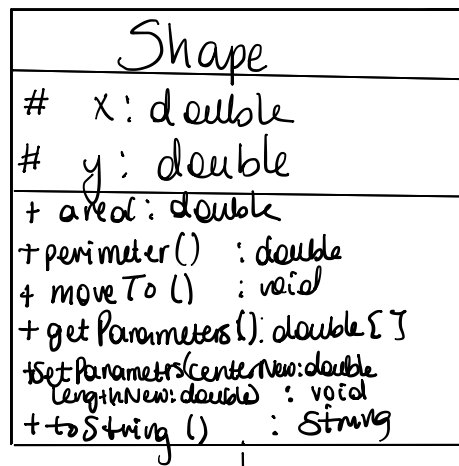 Shape
# x: double
# y: double
+ area: double
+perimeter() : double
+ moveTo() : void
+getParameters(): double[]
+SetParametrs(centerNew:double
lengthNew:double) : void
+toString() : String